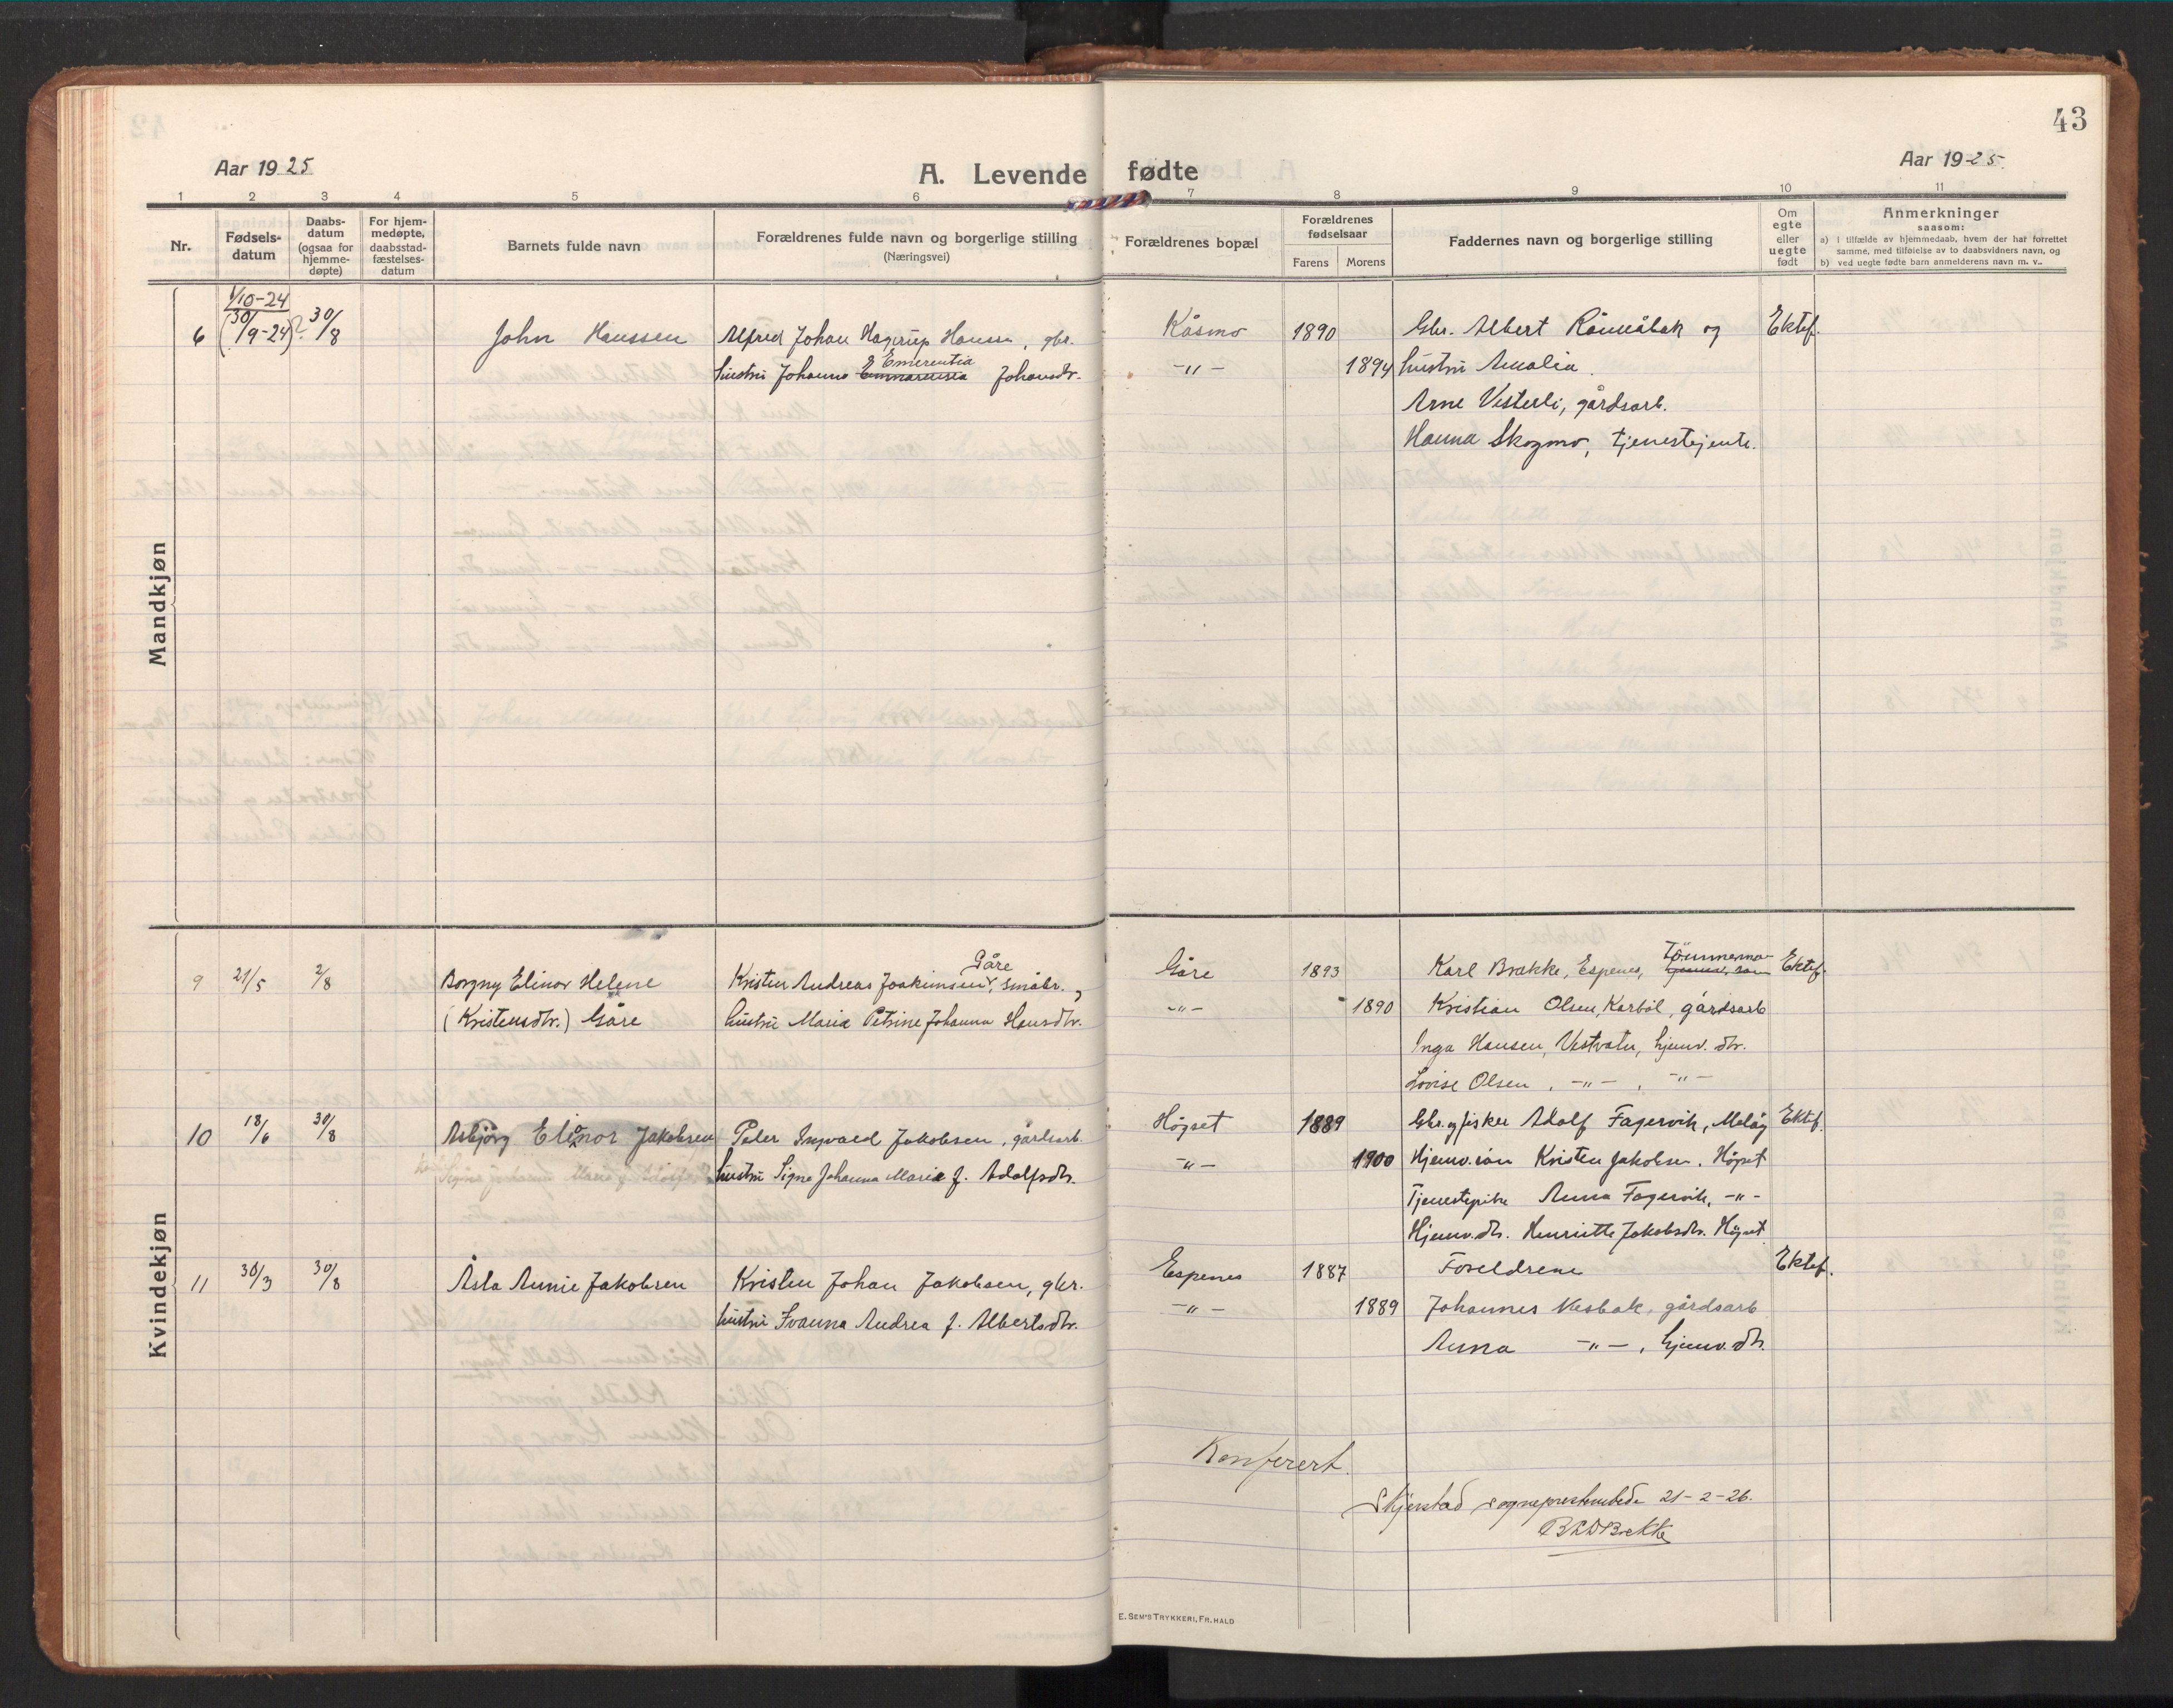 43
Aar 1925
A. Levende fødte
Aar 1925.
1 2 3 4 5 6 7 8 9 10 11
Nr.
Fødsels-
datum
Daabs-
datum
(ogsaa for
hjemme-
døpte)
For hjem-
medøpte,
daabsstad-
fæstelses-
datum
Barnets fulde navn
Forældrenes fulde navn og borgerlige stilling
(Næringsvei)
Forældrenes bopæl
Forældrenes
fødselsaar
Farens Morens
Faddernes navn og borgerlige stilling
Om
egte
eller
uegte
født
Anmerkninger
saasom:
a) i tilfælde av hjemmedaab, hvem der har forrettet
samme, med tilføielse av to daabsvidners navn, og
b) ved uegte fødte barn anmelderens navn m. v..
Mandkjøn
1/10-24
6 (30/9-24)? 30/8 John Hanssen Alfred Johan Hagerup Hanssn, gbr. Kåsmo 1890 Gbr. Albert Rånnåbak og Ektef.
Emerentia
hustru Johanna Johansdr. -"- 1894 hustru Amalia.
Arne Vesterli, gårdsarb.
Hanna Skogmo, tjenestejente.
Kvindekjøn
Gåre Tömmerma
9 21/5 2/8 Borgny Elinor Helene Kristen Andreas Joakimsen, småbr., Gåre 1893 Karl Brække, Espenes, Ektef.
(Kristensdtr.) Gåre hustru Maria Petrine Johanna Hansdtr. -"- 1890 Kristian Olsen, Karböl, gårdsarb
Inga Hansen, Vestvatn, hjemv. dtr.
Lovise Olsen, -"-, -"-
10 18/6 30/8 Asbjørg Elinor Jakobsen Peder Ingvald Jakobsen, gårdsarb. Högset 1889 Gbr. og fisker Adolf Fagervik, Meløy Ektef.
hustru Signe Johanna Marie f. Adolfsdtr. -"- 1900 Hjemv. sön Kristen Jakobsen, Högset
Tjenestepike Anna Fagervik, -"-
Hjemv. dtr. Henriette Jakobsdtr. Högset
11 30/3 30/8 Åsta Annie Jakobsen Kristen Johan Jakobsen, gbr. Espenes 1887 Foreldrene Ektef.
hustru Ivanna Andrea f. Albertsdtr. -"- 1889 Johannes Næsbak, gårdsarb
Anna -"-, hjemv. dtr.
Konferert.
Skjerstad sogneprestembede 21-2-26.
E. SEM'S TRYKKERI, FR. HALD